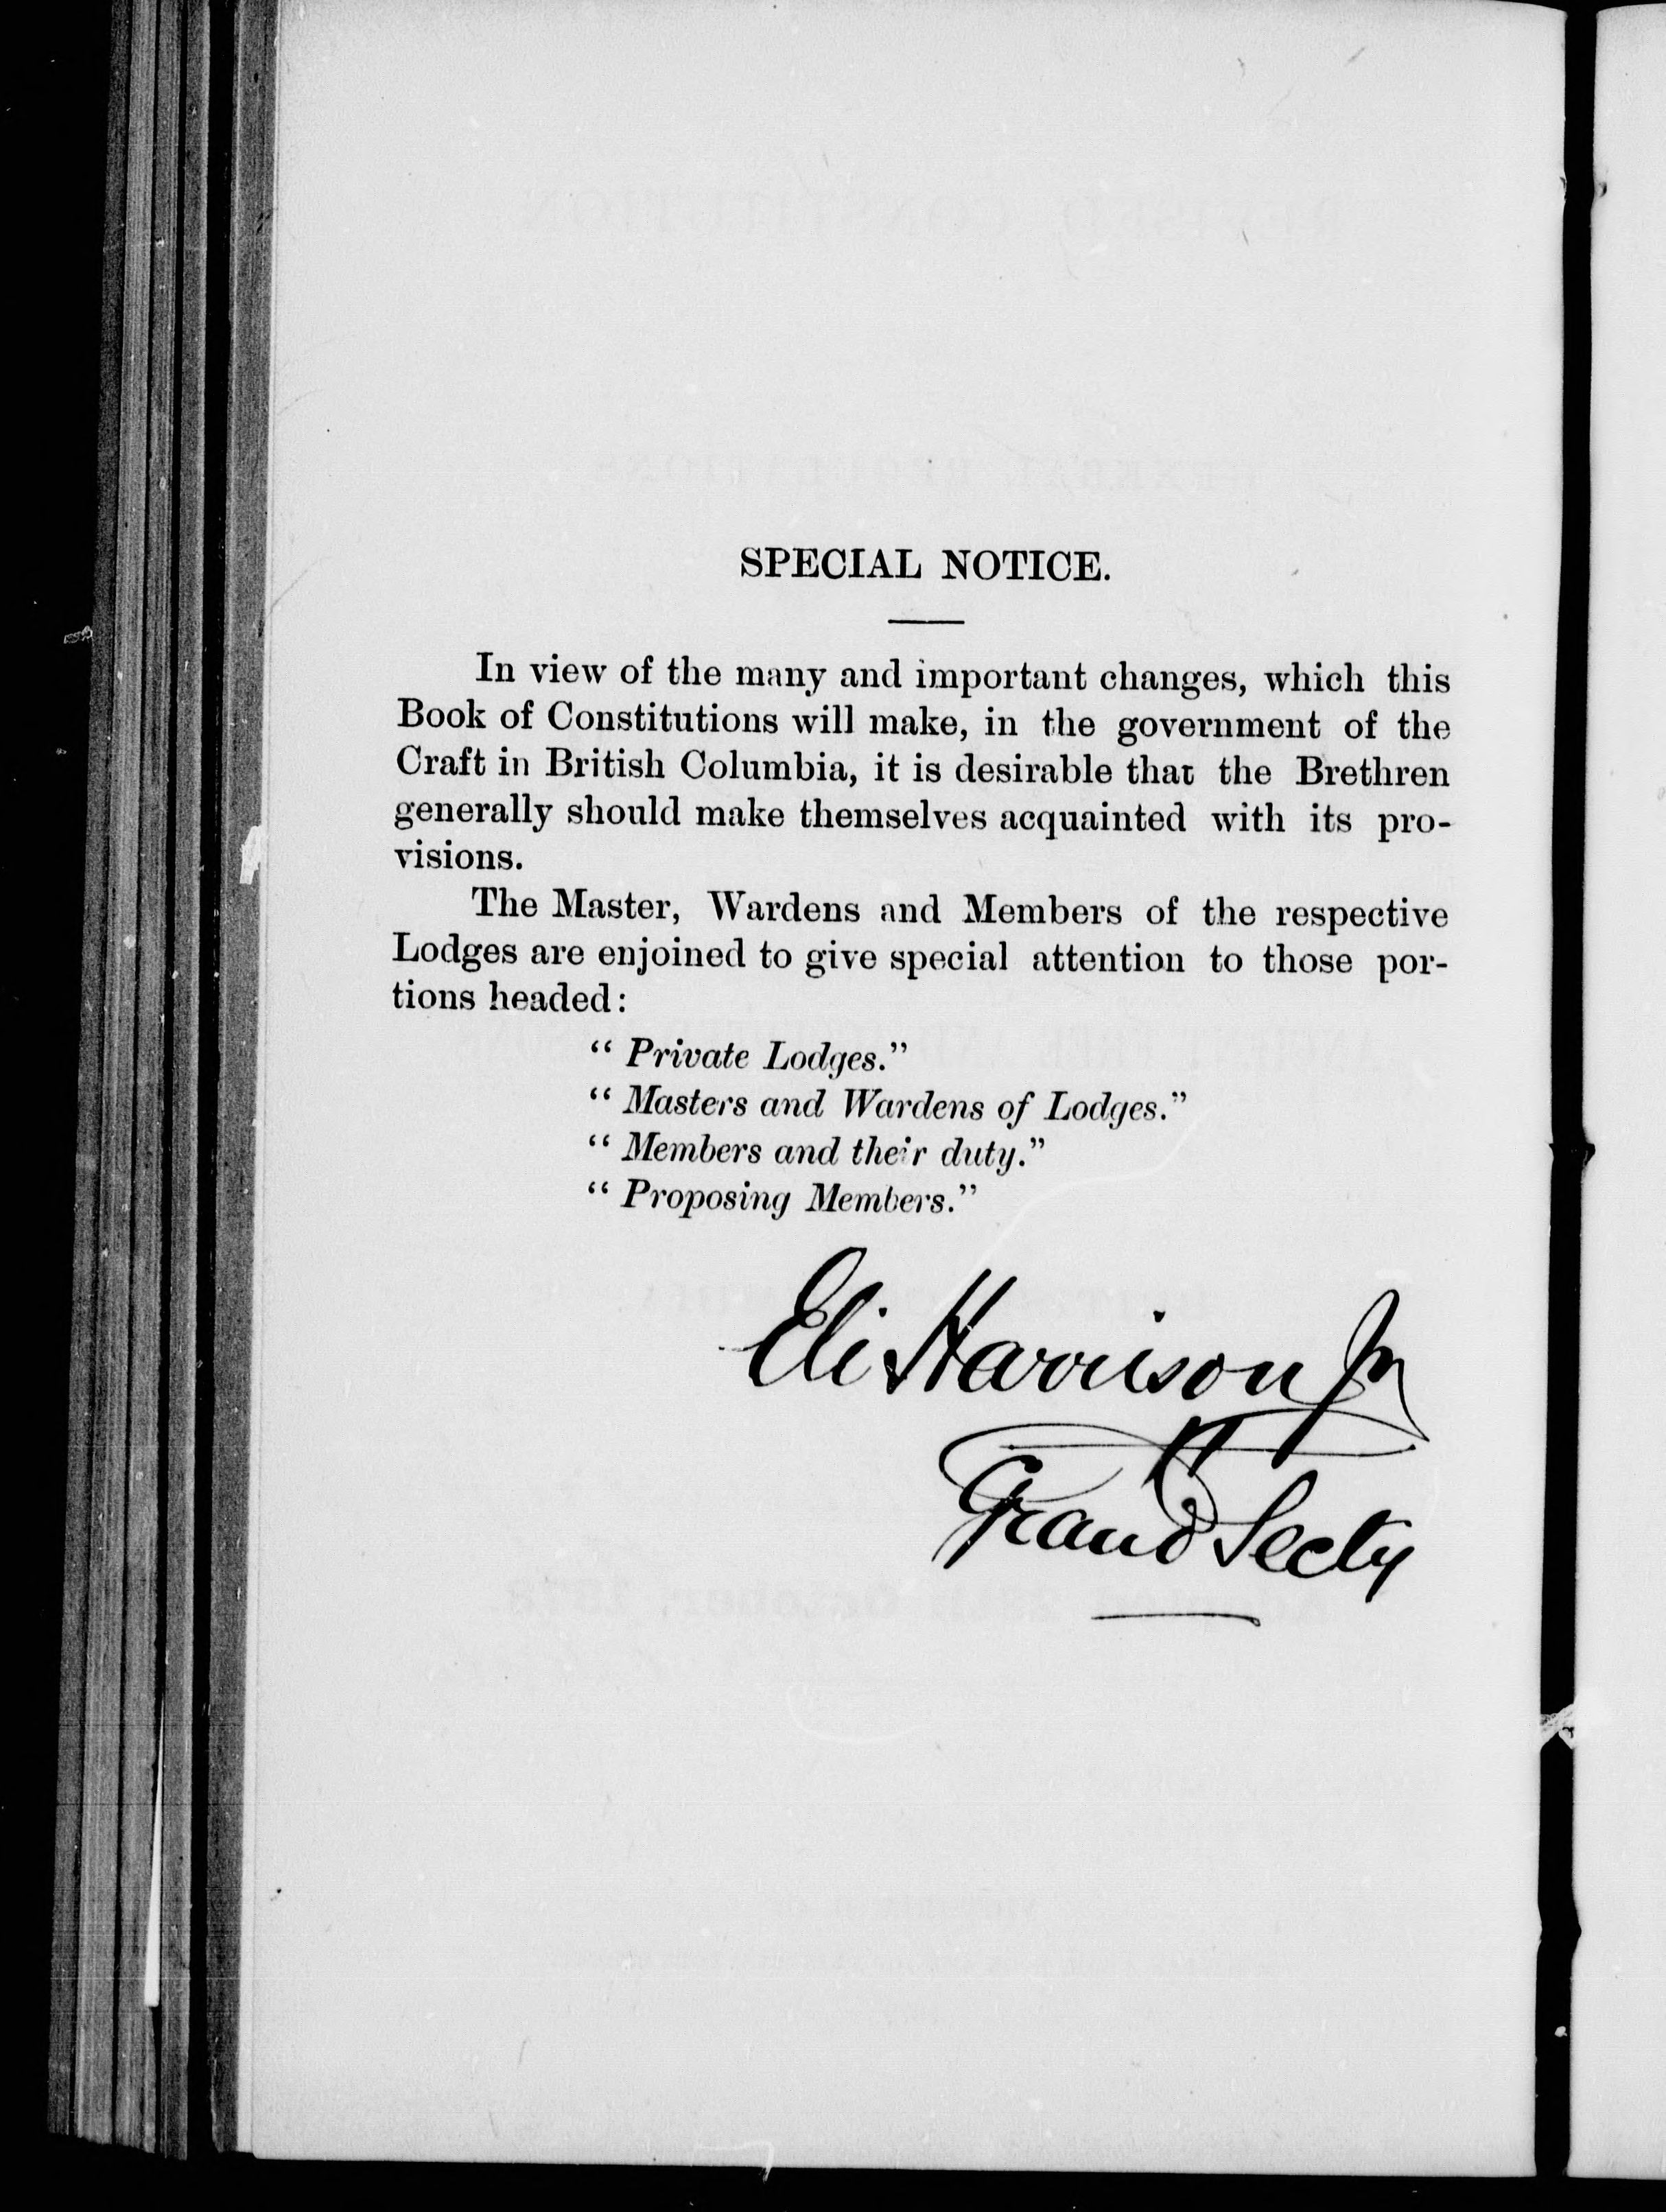 SPECIAL NOTICE.
In view of the many and important changes, which this
Book of Constitutions will make, in the government of the
Craft in British Columbia, it is desirable that the Brethren
generally should make themselves acquainted with its pro-
visions.
The Master, Wardens and Members of the respective
Lodges are enjoined to give special attention to those por-
tions headed:
“ Private Lodges.”
“ Masters and Wardens of Lodges.”
“ Members and their duty.”
“ Proposing Members.”
Eli Harrison Jr
Grand Secty